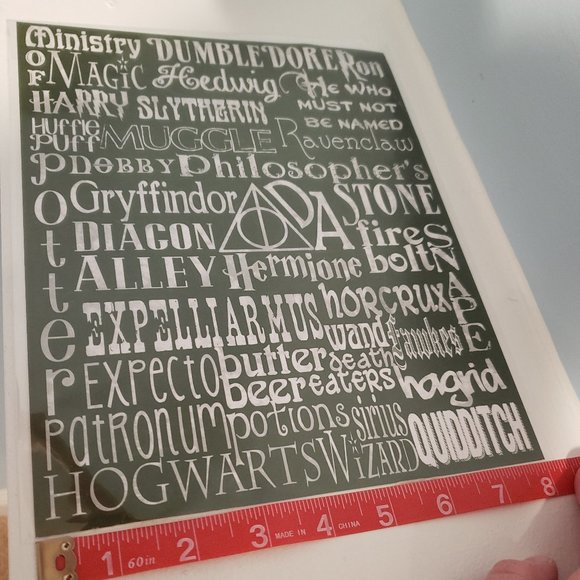 Ministry DUMBLEDORE Ron
OF MAGIC Hedwig HE WHO
HARRY SLYTHERIN MUST NOT
Huffle Puff MUGGLE Ravenclaw BE NAMED
Potter DOBBY Philosopher's
Gryffindor DA STONE
DIAGON fire SNAPE
ALLEY Hermione bolt
EXPELLIARMUS horcrux
wand fawkes
EXPECTO butter death
beer EATERS hagrid
PATRONUM potions sirius
HOGWARTS WIZARD QUIDDITCH
1 60in 2 3 MADE IN 4 CHINA 5 6 7 8